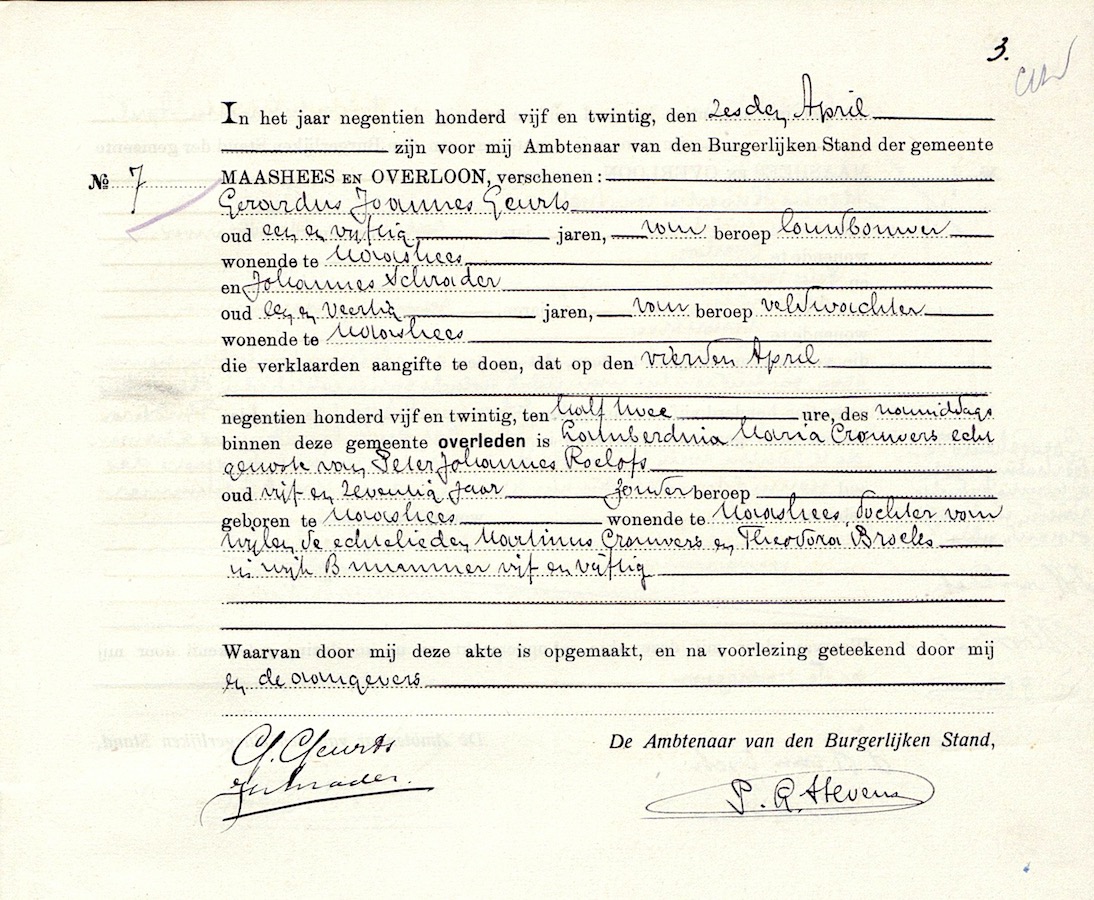 3.
In het jaar negentien honderd vijf en twintig, den zesden April
zijn voor mij Ambtenaar van den Burgerlijken Stand der gemeente
No 7 MAASHEES EN OVERLOON, verschenen:
Gerardus Joannes Geurts
oud een en vijftig jaren, van beroep landbouwer
wonende te Maashees
en Johannes Schrader
oud een en veertig jaren, van beroep veldwachter
wonende te Maashees
die verklaarden aangifte te doen, dat op den vierden April
negentien honderd vijf en twintig, ten half twee ure, des namiddags
binnen deze gemeente overleden is Lamberdina Maria Crouwers echt
genoote van Peter Johannes Roelofs
oud vijf en zeventig jaar zonder beroep
geboren te Maashees wonende te Maashees, dochter van
wijlen de echtelieden Martinus Crouwers en Theodora Broeles
in wijk B nummer vijf en vijftig
Waarvan door mij deze akte is opgemaakt, en na voorlezing geteekend door mij
en de aangevers
De Ambtenaar van den Burgerlijken Stand,
G. Geurts
JSchrader.
P. A. Stevens